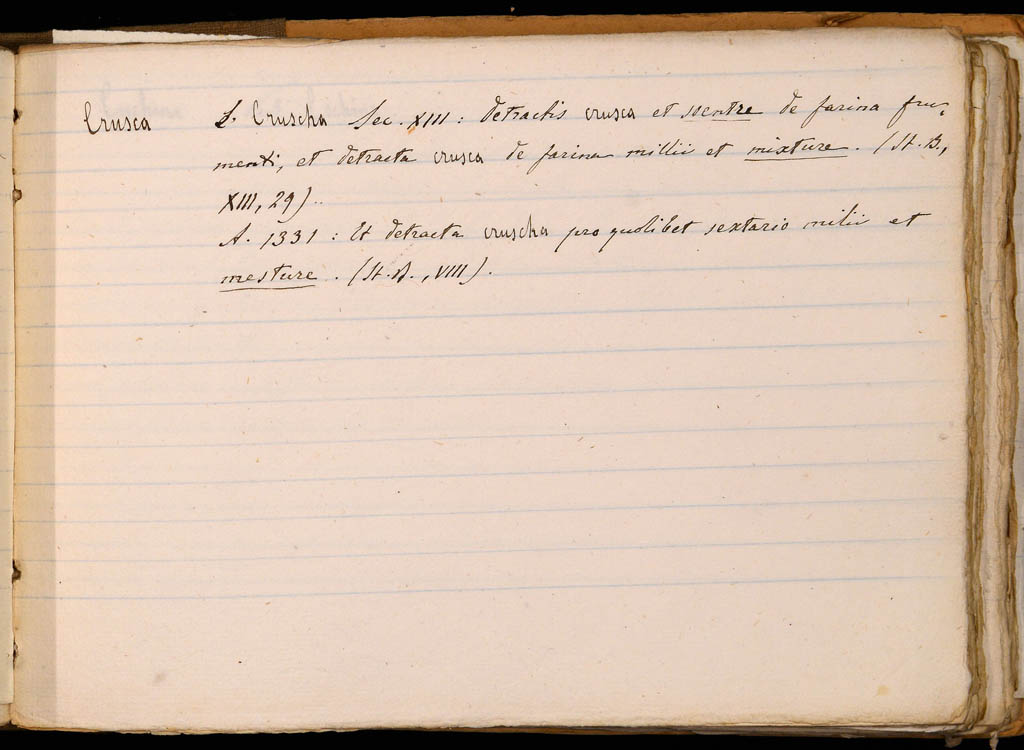 Crusca L. Cruscha Sec. XIII: detractis crusca et sventre de farina fru-
menti, et detracta crusca de farina millii et mixture. (St. B.,
XIII, 29)..
A. 1331: Et detracta cruscha pro quolibet sextario milii et
mesture. (St. A., VIII).